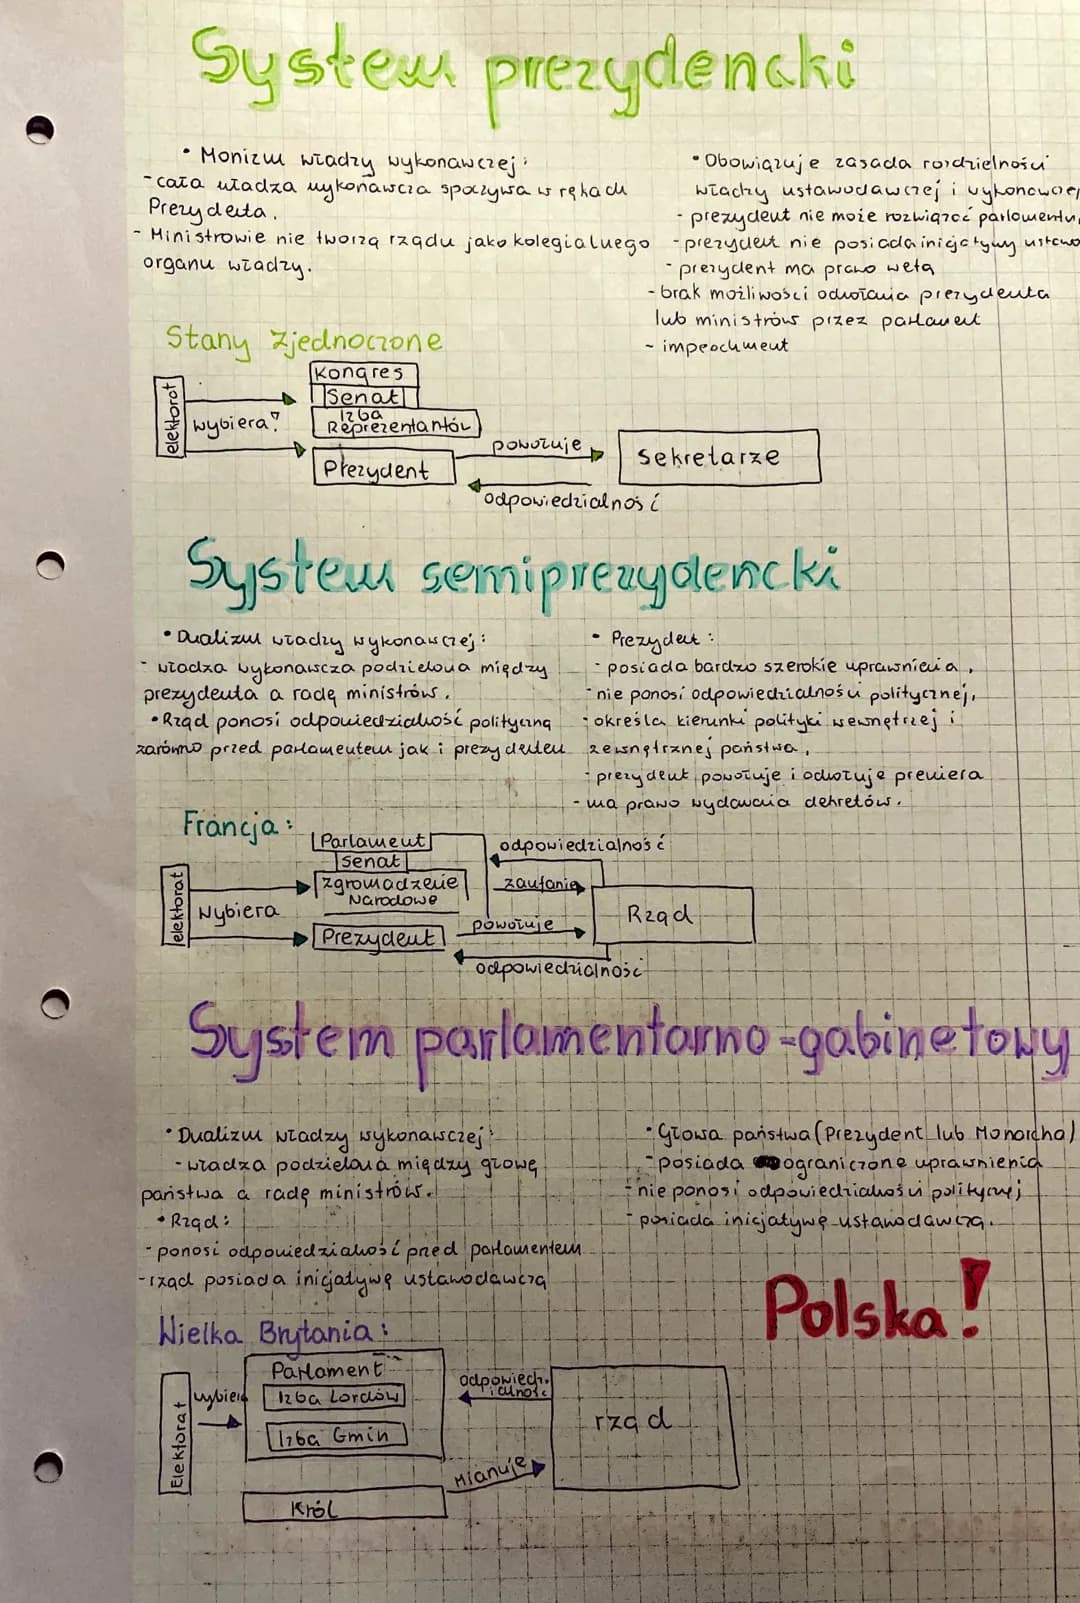 System prezydencki
• Monizm władzy wykonawczej:
- cała władza wykonawcza spoczywa w rękach
Prezydenta.
- Ministrowie nie tworzą rządu jako kolegialnego
organu władzy.
• Obowiązuje zasada rozdzielności
władzy ustawodawczej i wykonawczej
- prezydent nie może rozwiązać parlamentu,
- prezydent nie posiada inicjatywy ustawo
- prezydent ma prawo weta
- brak możliwości odwołania prezydenta
lub ministrów przez parlament
- impeachment
Stany Zjednoczone
elektorat
wybiera?
Kongres
Senat
Izba
Reprezentantów
Prezydent
powołuje
odpowiedzialność
Sekretarze
System semiprezydencki
• Dualizm władzy wykonawczej:
- władza wykonawcza podzielona między
prezydenta a radę ministrów.
• Rząd ponosi odpowiedzialność polityczną
zarówno przed parlamentem jak i prezydentem
• Prezydent:
- posiada bardzo szerokie uprawnienia,
- nie ponosi odpowiedzialności politycznej,
- określa kierunki polityki wewnętrzej i
zewnętrznej państwa,
- prezydent powołuje i odwołuje premiera
- ma prawo wydawania dekretów.
Francja:
elektorat
Wybiera
Parlament
Senat
Zgromadzenie
Narodowe
Prezydent
odpowiedzialność
zaufanie
powołuje
odpowiedzialność
Rząd
System parlamentarno-gabinetowy
• Dualizm władzy wykonawczej:
- władza podzielona między głowę
państwa a radę ministrów.
• Rząd:
- ponosi odpowiedzialność przed parlamentem
- rząd posiada inicjatywę ustawodawczą
• Głowa państwa (Prezydent lub Monarcha)
- posiada ograniczone uprawnienia
- nie ponosi odpowiedzialności politycznej
- posiada inicjatywę ustawodawczą.
Polska!
Wielka Brytania:
Elektorat
wybiera
Parlament
Izba Lordów
Izba Gmin
Król
odpowiedz.
ialność
mianuje
rząd